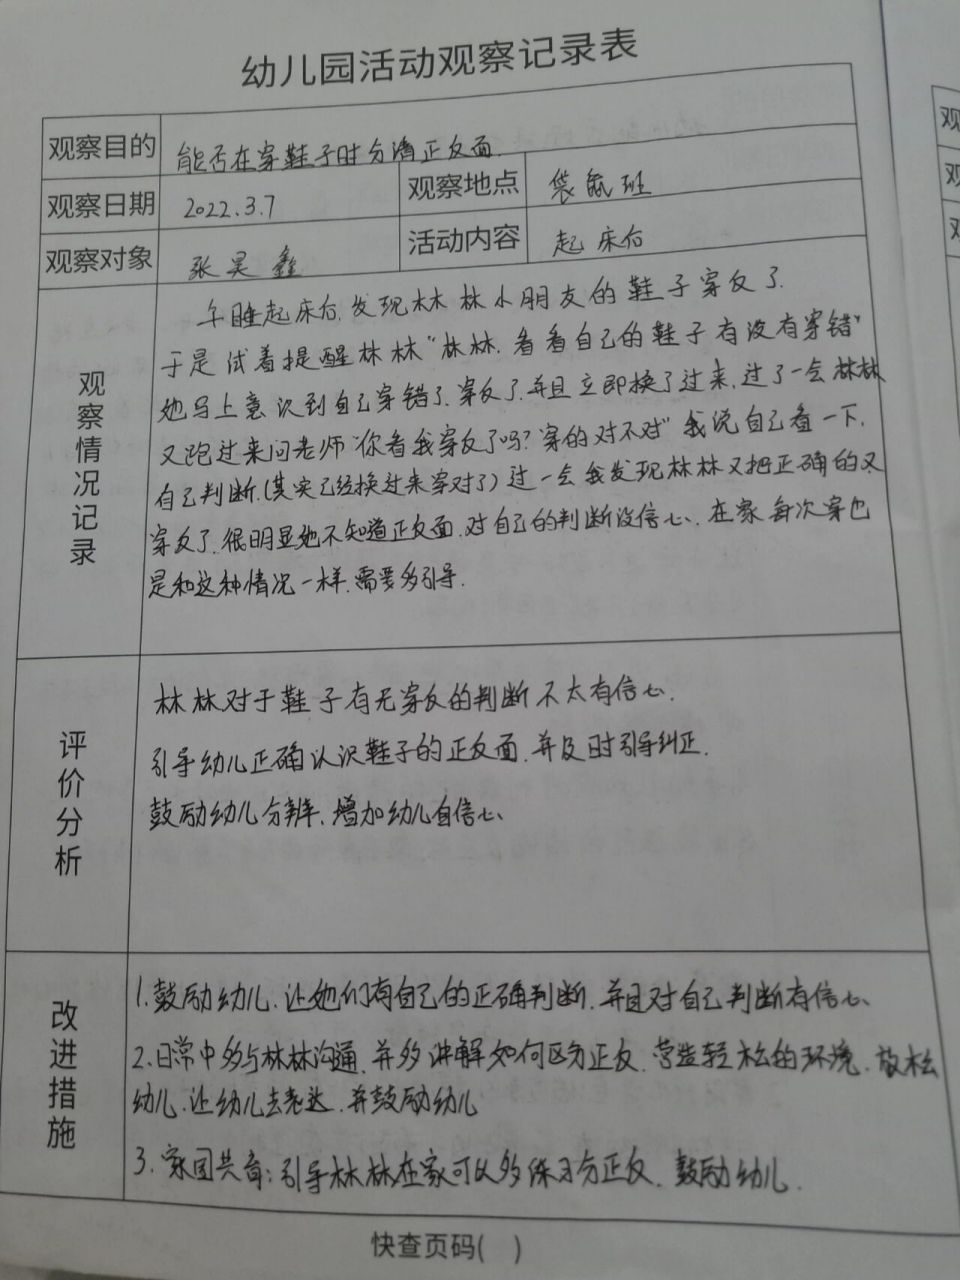 幼儿园活动观察记录表
观察目的 能否在穿鞋子时分清正反面.
观察日期 2022.3.7 观察地点 袋鼠班
观察对象 张昊鑫 活动内容 起床后
观察情况记录
午睡起床后,发现林林小朋友的鞋子穿反了.
于是试着提醒林林"林林.看看自己的鞋子有没有穿错"
她马上意识到自己穿错了.穿反了.并且立即换了过来.过了一会林林
又跑过来问老师"你看我穿反了吗?穿的对不对"我说自己看一下.
自己判断.(其实已经换过来穿对了)过一会我发现林林又把正确的又
穿反了.很明显她不知道正反面.对自己的判断没信心.在家每次穿也
是和这种情况一样.需要多引导.
评价分析
林林对于鞋子有无穿反的判断不太有信心.
引导幼儿正确认识鞋子的正反面.并及时引导纠正.
鼓励幼儿分辨.增加幼儿自信心
改进措施
1.鼓励幼儿.让她们有自己的正确判断.并且对自己判断有信心.
2.日常中多与林林沟通.并多讲解如何区分正反.营造轻松的环境.放松
幼儿.让幼儿去表达.并鼓励幼儿
3.家园共育:引导林林在家可以多练习分正反.鼓励幼儿.
快查页码( )
观
观
观